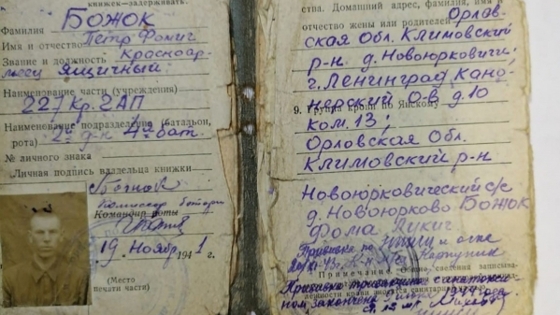 книжек—задерживать.
Фамилия БОЖОК
Имя и отчество Петр Фомич
Звание и должность Красноар-
меец ящичный
Наименование части (учреждения)
227 Кр. 2АП
Наименование подразделения (батальон,
рота) 2й д-н 4я бат.
№ личного знака
Личная подпись владельца книжки
Божок
Комиссар батареи
Командир роты
19 Ноябр 1941 г.
(Место
печати части)
ста. Домашний адрес, фамилия, имя и
отчество жены или родителей Орлов-
ская Обл. Климовский
р-н д. Новоюрковичи;
г. Ленинград Кано-
нерский О-в д. 10
9. Группа крови по Янскому
ком. 13;
Орловская Обл.
Климовский р-н
Новоюрковический с/с
д. Новоюрково Божок
Фома Лукич
Прививка по и оспе
Примечание